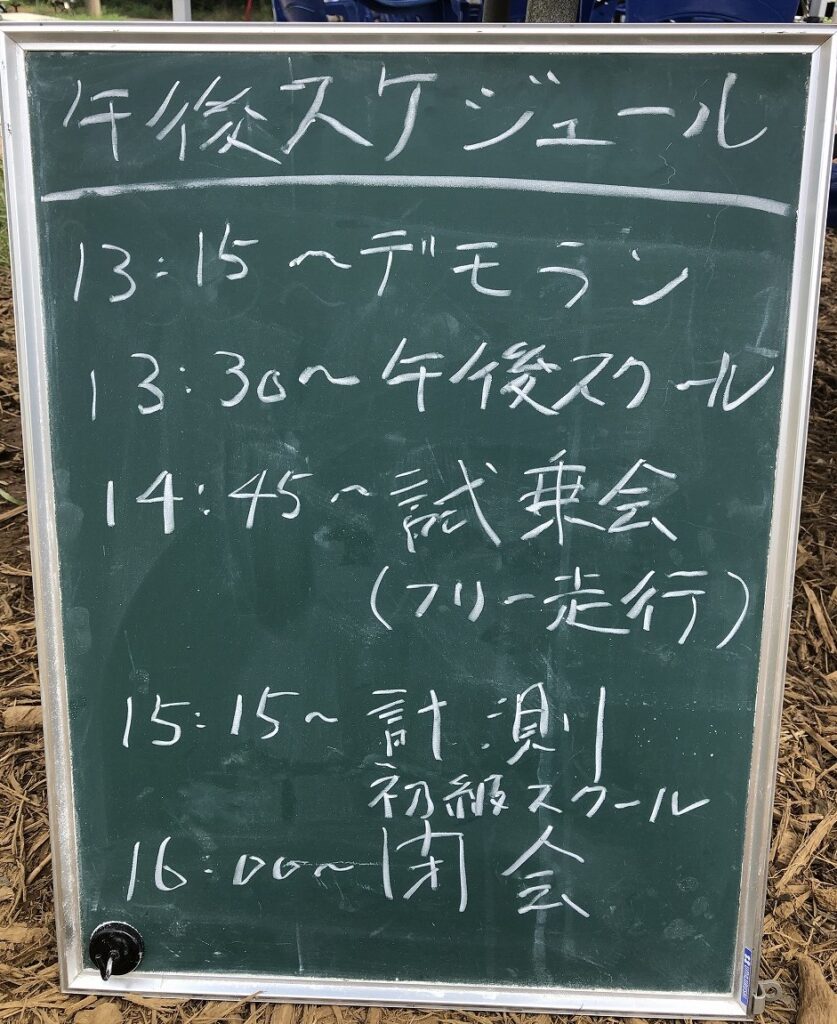 午後スケジュール
13:15～デモラン
13:30～午後スクール
14:45～試乗会
(フリー走行)
15:15～計測
初級スクール
16:00～閉会